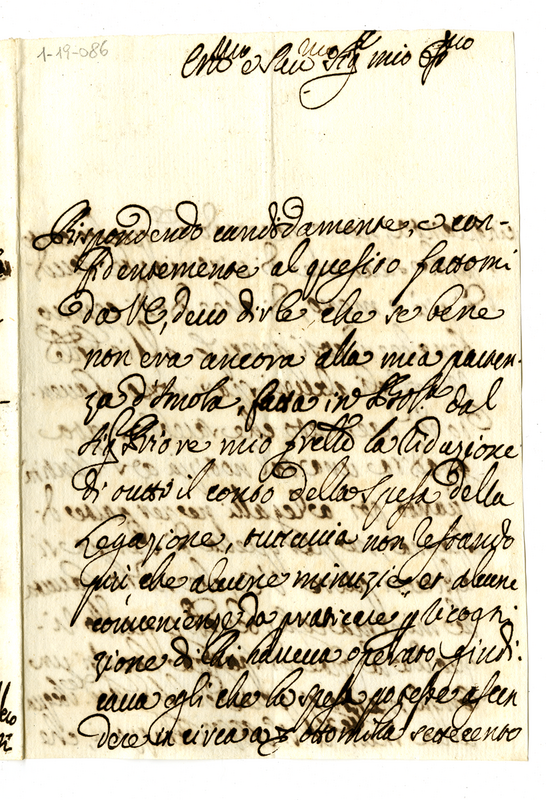 1-19-086
mio
Rispondendo candidamente, e con-
fidentemente al quesito fattomi
da VE, devo dirle che se bene
non era ancora alla mia parten-
za d'Imola, fatta in dal
Sig Priore mio frello la liduzione
di tutto il conto della spesa della
Legazione, tuttavia non restando
più, che alcune minuzie et alcune
convenienze da praticare licogni-
zione di chi haueua operato, giudi-
caua egli che la spesa potesse ascen
dere in circa a ottomilla settecento